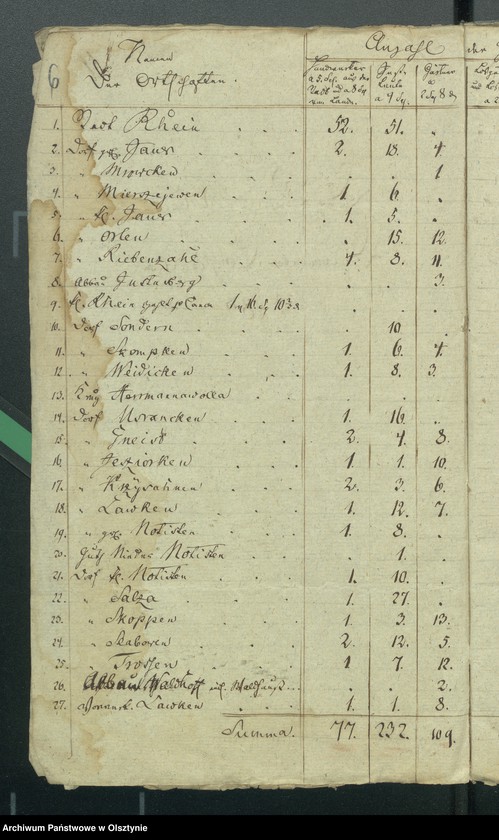 6
Namen
der Ortschaften.
Anzahl der
1. Stadt Rhein . . 52. 51. "
2. Dorf grß Jauer . . . 2. 13. 4.
3. " Mrowcken . . . . . 1
4. " Mierszejewen . . . 1. 6. .
5. " kl. Jauer . . . 1. 5. .
6. " Orlen . . . . 15. 12.
7. " Riebenzahl . . . 4. 8. 11.
8. Abbau Justusberg . . . . . 3.
9. kl. Rhein
10. Dorf Sondern . . . . 10. .
11. " Skompken . . . 1. 6. 4.
12. " Weidicken . . . 1. 8. 3.
13. Krug Herrmannawolla . . . . .
14. Dorf Usrancken . . . 1. 16. .
15. " Gneist . . . 2. 4. 8.
16. " Jesziorken . . . 1. 1. 10.
17. " Krzysahnen . . . 2. 3. 6.
18. " Lawken . . . 1. 12. 7.
19. " grß Notisten . . . 1. 8. .
20. Guth Nieder Notisten . . . 1. .
21. Dorf kl. Notisten . . . 1. 10. .
22. " Salza . . . 1. 27. .
23. " Skoppen . . . 1. 3. 13.
24. " Skaboren . . . 2. 12. 5.
25. " Trossen . . . 1 7. 12.
26. Abbau Waldhoff . . . 2.
27. Lawken . . . 1. 1. 8.
Summa. 77. 232. 109.
Archiwum Państwowe w Olsztynie